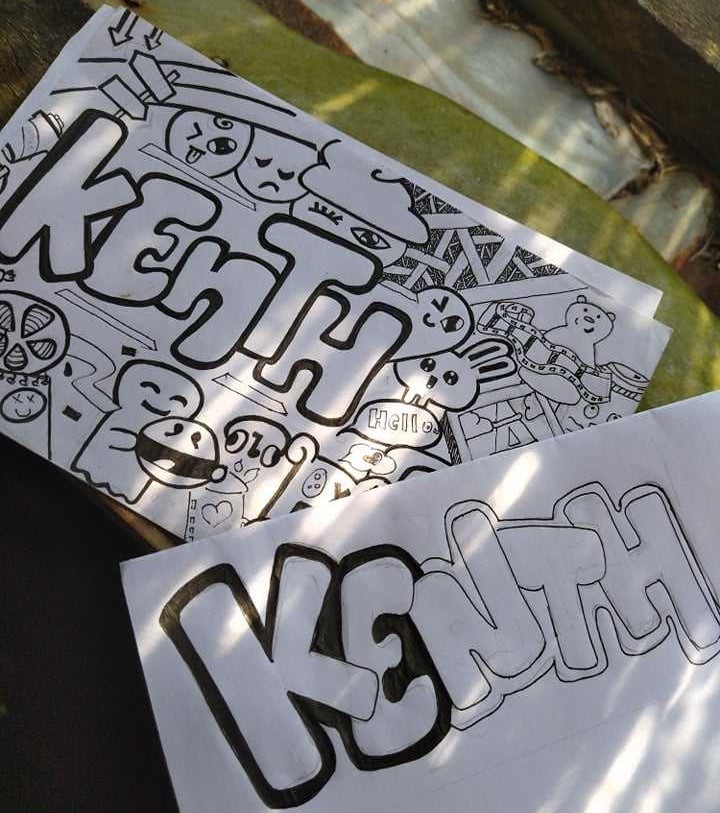 KEnTH
Hello
KENTH